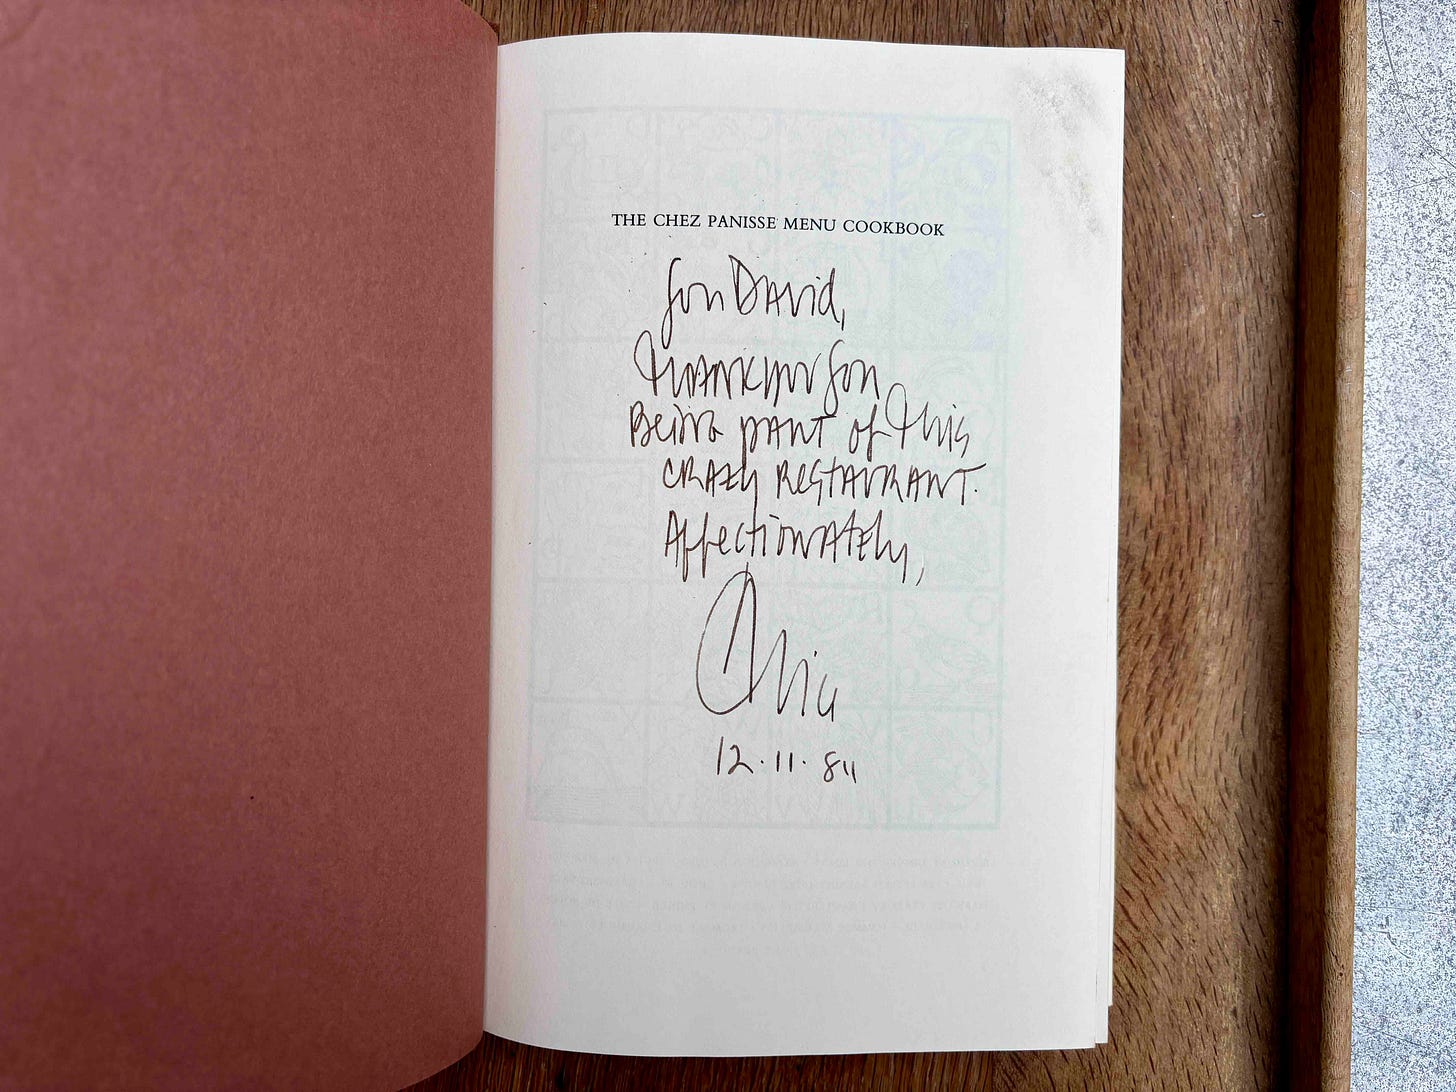 THE CHEZ PANISSE MENU COOKBOOK
for David,
Thank you for
Being part of this
CRAZY RESTAURANT.
Affectionately,
Alice
12.11.84